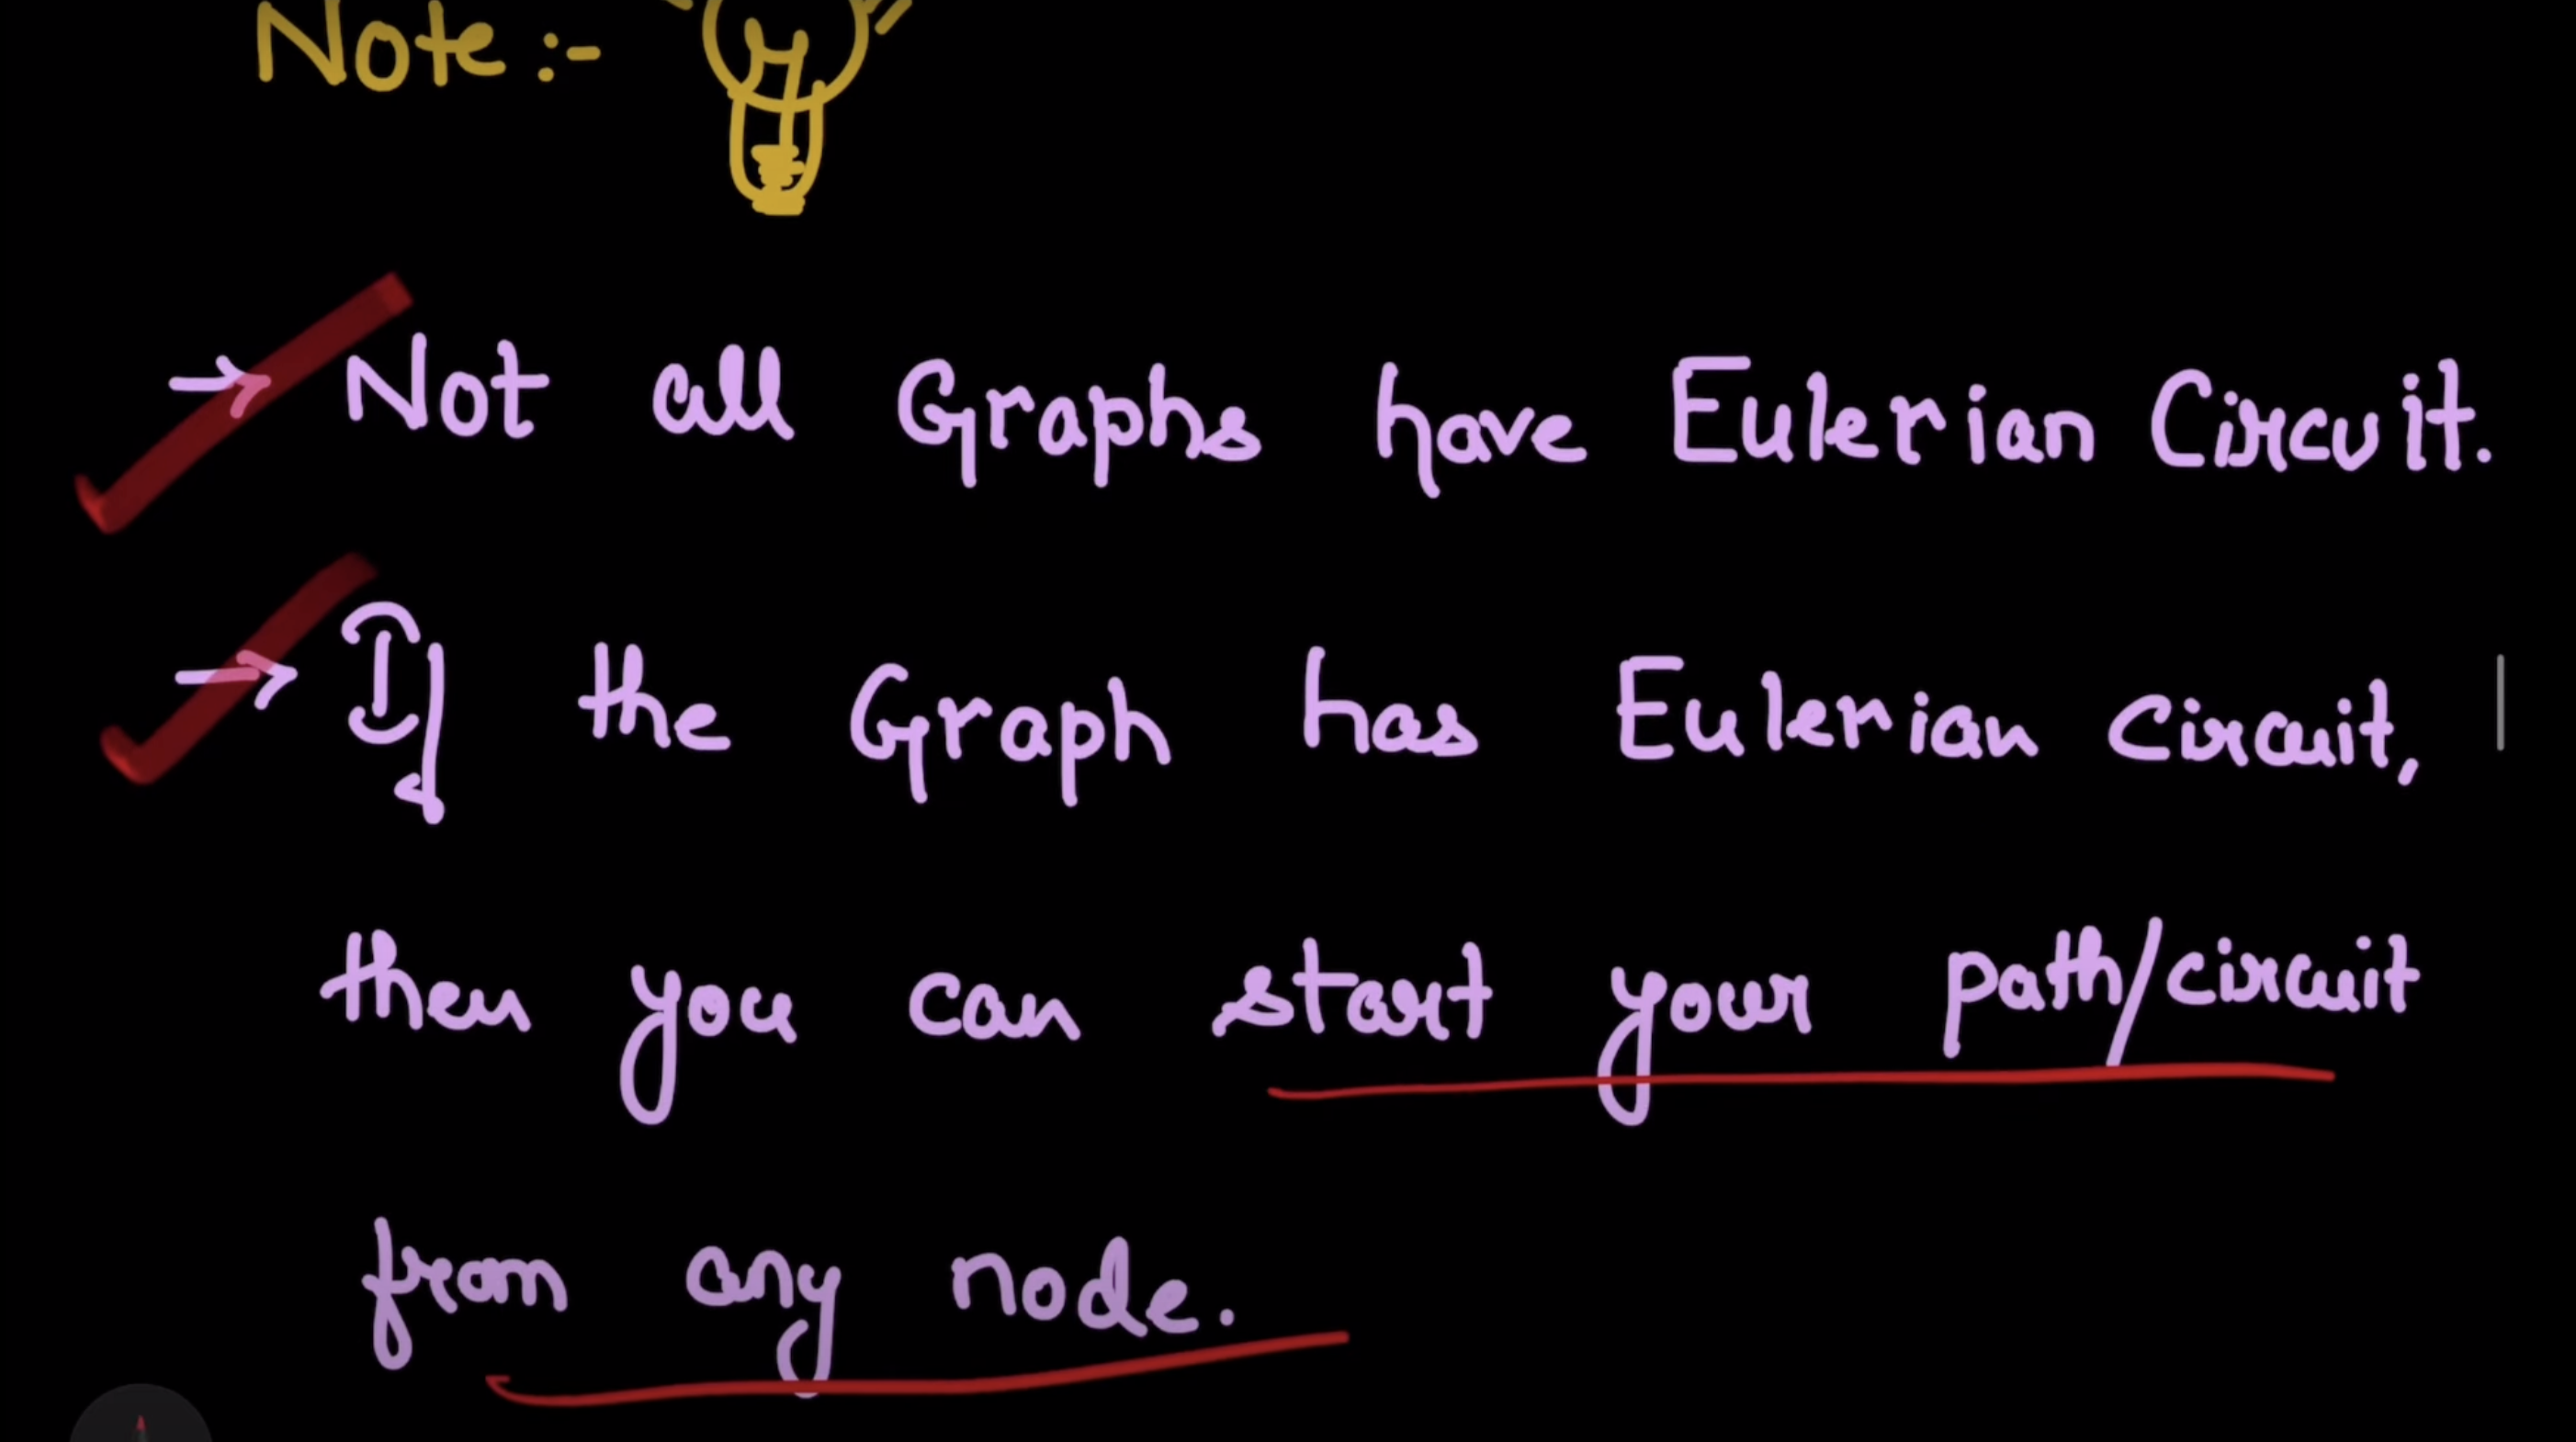 Note :-
→ Not all Graphs have Eulerian Circuit.
→ If the Graph has Eulerian circuit,
then you can start your path/circuit
from any node.